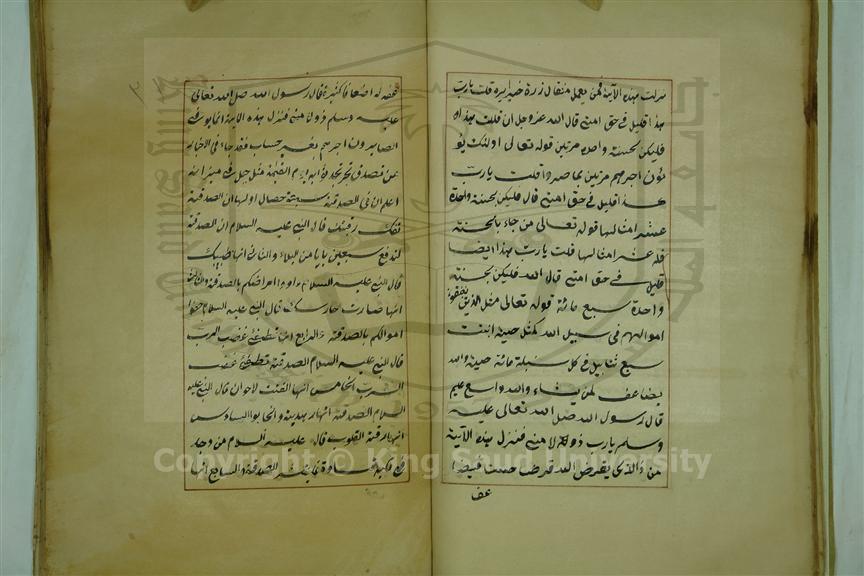 نزلت بهذه الآية فمن يعمل مثقال ذرة خيرا يره قلت يا رب
هذا قليل في حق امتي قال الله عز وجل ان قلت بهذا
فليكن لحسنة واحدة مرتين قوله تعالى اولئك يؤ
تون اجرهم مرتين بما صبروا قلت يا رب
هذا قليل في حق امتي قال فليكن لحسنة واحدة
عشر امثالها قوله تعالى من جاء بالحسنة
فله عشر امثالها قلت يا رب بهذا ايضا
قليل في حق امتي قال الله فليكن لحسنة
واحدة سبع مائة قوله تعالى مثل الذين ينفقون
اموالهم في سبيل الله كمثل حبة انبتت
سبع سنابل في كل سنبلة مائة حبة والله
يضاعف لمن يشاء والله واسع عليم
قال رسول الله صلى الله تعالى عليه
وسلم يا رب زد لامتي فنزل بهذه الآية
من ذا الذي يقرض الله قرضا حسنا فيضا
عف
عفه له اضعافا كثيرة قال رسول الله صلى الله تعالى
عليه وسلم زد لامتي فنزل بهذه الآية انما يوفى
الصابرون اجرهم بغير حساب فقد جاء في الاخبار
من تصدق يوم القيمة مثل جبل في ميزانه
اعلم ان في الصدقة سبعة خصال اولها ان الصدقة
تفك رقبتك قال النبي عليه السلام ان الصدقة
لتدفع سبعين بابا من البلاء والثاني انها طبيبك
قال النبي عليه السلام داووا امراضكم بالصدقة والثالث
انها صارت حارسك قال النبي عليه السلام حرزوا
اموالكم بالصدقة والرابع انها تطفئ غضب الرب
قال النبي عليه السلام الصدقة تطفئ غضب
الرب الخامس انها الفت لاخوان قال النبي عليه
السلام الصدقة انها هدية وتحابوا السادس
انها رقة القلوب قال عليه السلام من وجد
في قلبه قساوة الصدقة والسابع انها
Copyright © King Saud University